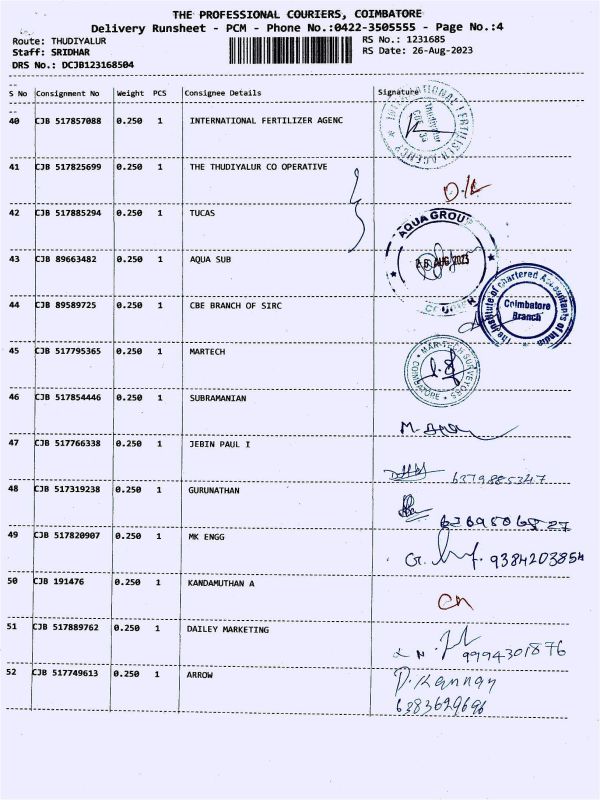 THE PROFESSIONAL COURIERS, COIMBATORE
Delivery Runsheet - PCM - Phone No.:0422-3505555 - Page No.:4
Route: THUDIYALUR RS No.: 1231685
Staff: SRIDHAR RS Date: 26-Aug-2023
DRS No.: DCJB123168504
S No Consignment No Weight PCS Consignee Details Signature
40 CJB 517857088 0.250 1 INTERNATIONAL FERTILIZER AGENC
41 CJB 517825699 0.250 1 THE THUDIYALUR CO OPERATIVE
42 CJB 517885294 0.250 1 TUCAS
AQUA GROUP
43 CJB 89663482 0.250 1 AQUA SUB
AUG 2023
44 CJB 89589725 0.250 1 CBE BRANCH OF SIRC
The Institute of Chartered Accountants of India
Coimbatore
Branch
45 CJB 517795365 0.250 1 MARTECH
MAR-TECH SURVEYORS
COIMBATORE
46 CJB 517854446 0.250 1 SUBRAMANIAN
47 CJB 517766338 0.250 1 JEBIN PAUL I
6379885347
48 CJB 517319238 0.250 1 GURUNATHAN
49 CJB 517820907 0.250 1 MK ENGG
9384203854
50 CJB 191476 0.250 1 KANDAMUTHAN A
51 CJB 517889762 0.250 1 DAILEY MARKETING
9994301876
52 CJB 517749613 0.250 1 ARROW
P. Kannan
6383629696